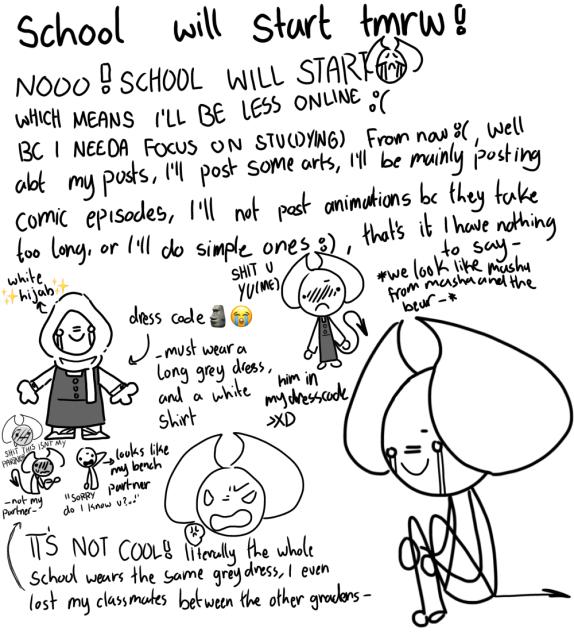 School will start tmrw!
NOOO! SCHOOL WILL START
WHICH MEANS I'LL BE LESS ONLINE :(
BC I NEEDA FOCUS ON STU(DYING) From now :(, well
abt my posts, I'll post some arts, I'll be mainly posting
comic episodes, I'll not post animations bc they take
too long, or I'll do simple ones :), that's it I have nothing
to say-
white
✨hijab✨
dress code 🗿😭
-must wear a
long grey dress,
and a white
shirt
SHIT U
YU(ME)
him in
my dresscode
>XD
*we look like masha
from masha and the
bear-*
SHIT THIS ISN'T MY
PARTNER
-not my
partner-
"SORRY
do I know u?.."
looks like
my bench
partner
IT'S NOT COOL! literally the whole
school wears the same grey dress, I even
lost my classmates between the other graders-